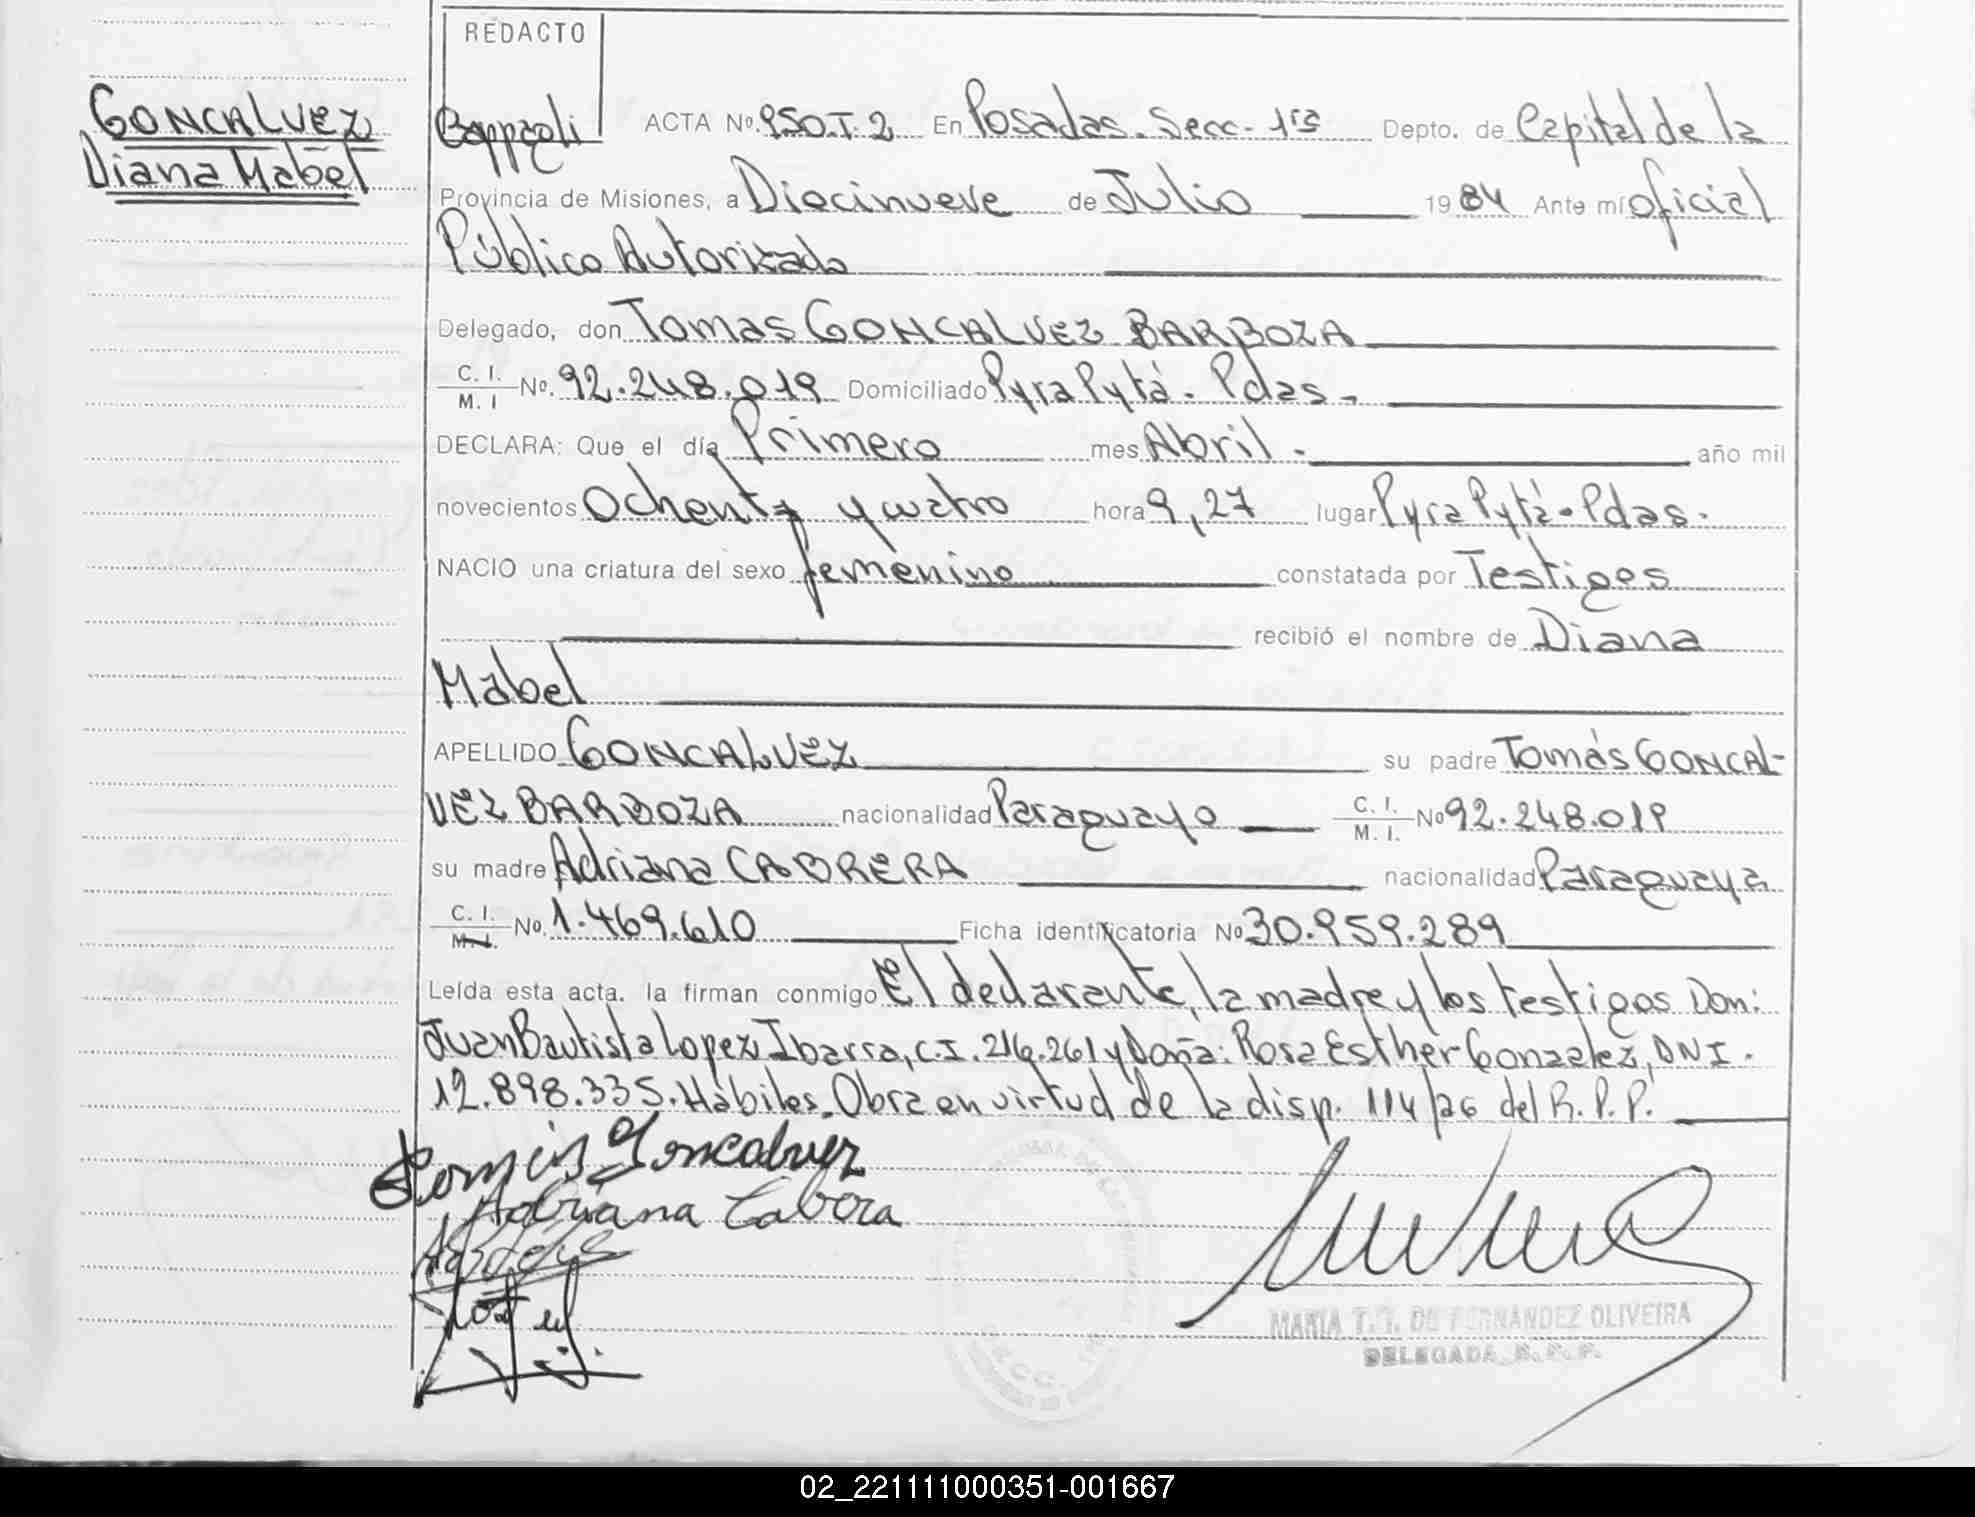 REDACTO
GONCALVEZ
Diana Mabel
ACTA Nº. 950.T.2 En Posadas. Secc- 1ra Depto. de Capital de la
Provincia de Misiones, a Diecinueve de Julio 1984 Ante mí oficial
Público Autorizado
Delegado, don Tomas GONCALVEZ BARBOZA
C. I. M. I Nº. 92.248.019 Domiciliado Pyra Pytá - Pdas -
DECLARA: Que el día Primero mes Abril - año mil
novecientos Ochenta y cuatro hora 9,27 lugar Pyra Pytá - Pdas.
NACIO una criatura del sexo femenino constatada por Testigos
recibió el nombre de Diana
Mabel
APELLIDO GONCALVEZ su padre Tomás GONCAL-
VEZ BARBOZA nacionalidad Paraguayo C. I. M. I. Nº 92.248.019
su madre Adriana CABRERA nacionalidad Paraguaya
C. I. M. I. Nº. 1.469.610 Ficha identificatoria Nº 30.959.289
Leída esta acta. la firman conmigo El declarante, la madre y los testigos Don:
Juan Bautista Lopez Ibarra, C.I. 216.261 y Doña: Rosa Esther Gonzalez, DNI.
12.898.335. Hábiles. Obra en virtud de la disp. 114/76 del R.P.P.
Tomás Goncalvez
Adriana Cabrera
MARIA T. DE FERNANDEZ OLIVEIRA
DELEGADA R. P. P.
02_221111000351-001667